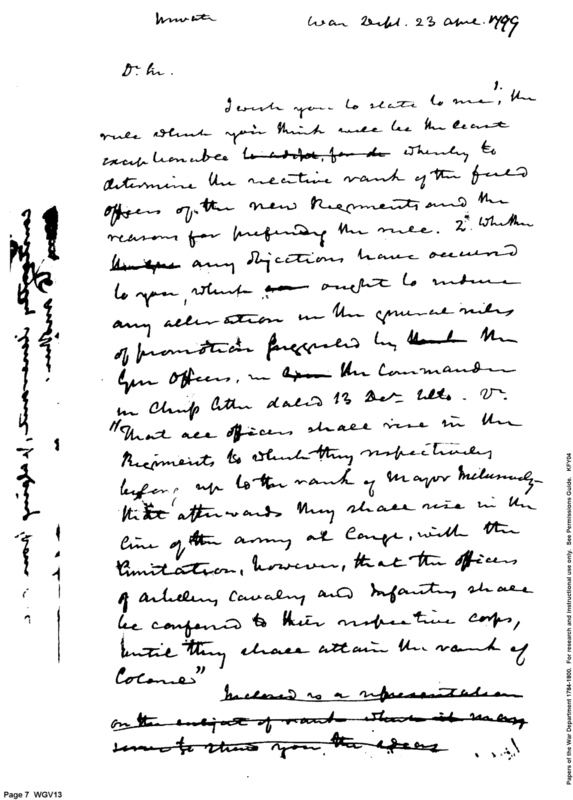 Private
War Dept. 23 April 1799
Dr Sir.
I wish you to state to me 1st, the
rule which you think will be the least
exceptionable to adopt, for de whereby to
determine the relative rank of the field
officers of the new Regiments and the
reasons for prefering the rule. 2d Whether
any objections have occurred
to you, which ought to induce
any alteration in the general rules
of promotion suggested by the
Gen Officers, in the Commander
in Chiefs letter dated 13 Decr ulto. Vz.
"That all officers shall rise in the
Regiments to which they respectively
belong up to the rank of Major inclusively
that afterwards they shall rise in the
line of the army at large, with the
limitation, however, that the officers
of artillery cavalry and Infantry shall
be confined to their respective corps,
until they shall attain the rank of
Colonel"
Inclosed is a representation
on the subject of rank which it may
serve to shew you the ideas
Page 7 WGV13
Papers of the War Department 1784-1800. For research and instructional use only. See Permissions Guide. KFY04